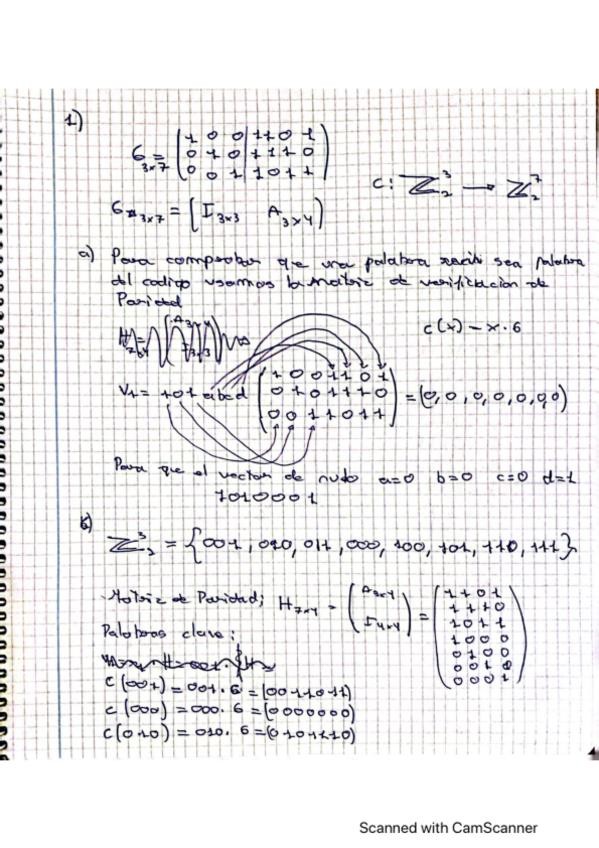 1)
G 3x7 = ( 1 0 0 1 1 0 1
0 1 0 1 1 1 0
0 0 1 1 0 1 1 )
C: ℤ₂³ → ℤ₂⁷
G 3x7 = [ I3x3 A3x4 )
a) Para comprobar que una palabra sea palabra
del codigo usamos la matriz de verificacion de
Paridad
c(x) = x · G
V1 = 101 abcd ( 1 0 0 1 1 0 1
0 1 0 1 1 1 0
0 0 1 1 0 1 1 ) = (0, 0, 0, 0, 0, 0, 0)
Para que el vector de nudo a=0 b=0 c=0 d=1
1010001
b)
ℤ₂³ = {001, 010, 011, 000, 100, 101, 110, 111}
Matriz de Paridad; H7x4 = ( A3x4
I4x4 ) = ( 1 1 0 1
1 1 1 0
1 0 1 1
1 0 0 0
0 1 0 0
0 0 1 0
0 0 0 1 )
Palabras clave:
C(001) = 001 · G = (0011011)
C(000) = 000 · G = (0000000)
C(010) = 010 · G = (0101110)
Scanned with CamScanner